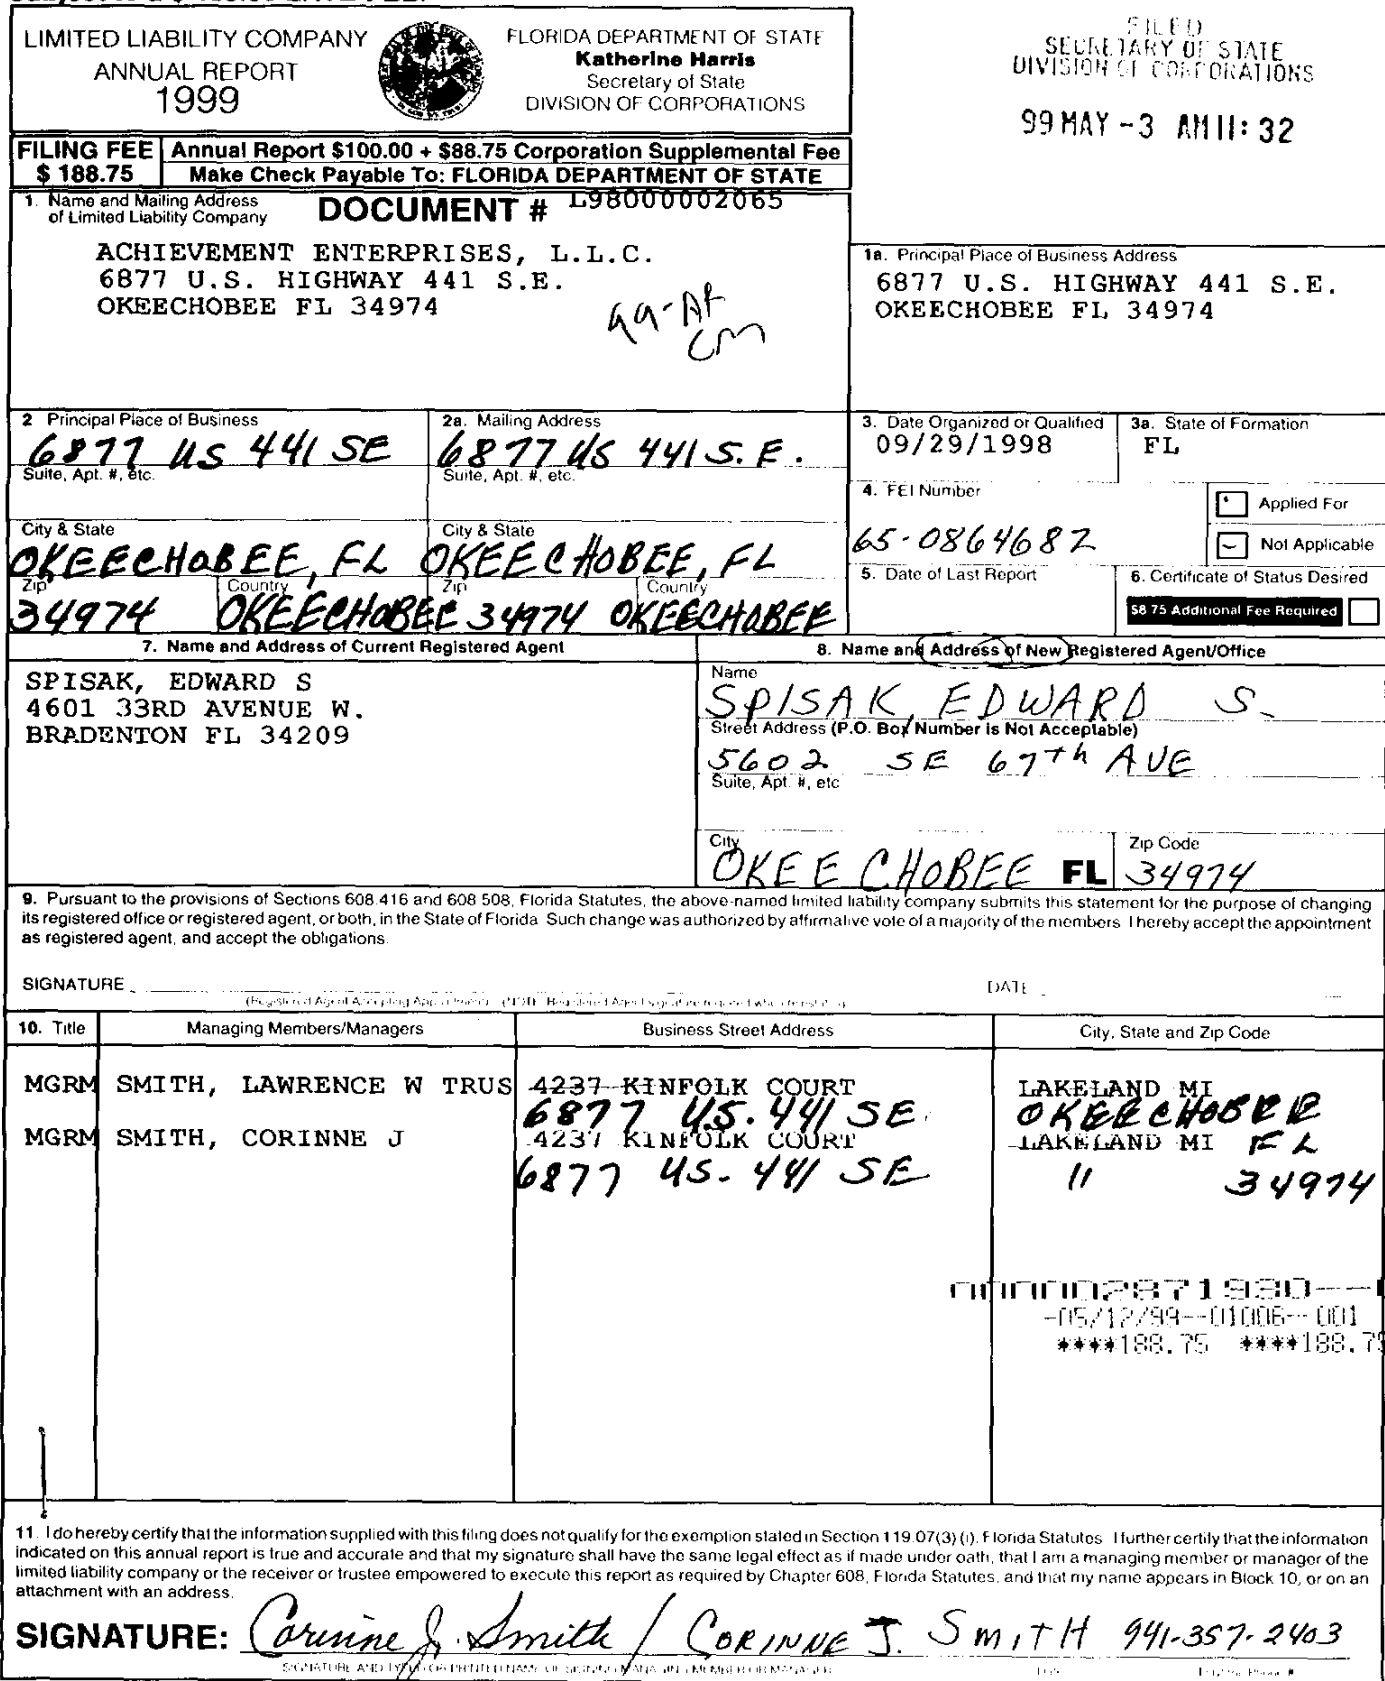 LIMITED LIABILITY COMPANY
ANNUAL REPORT
1999
FLORIDA DEPARTMENT OF STATE
Katherine Harris
Secretary of State
DIVISION OF CORPORATIONS
FILED
SECRETARY OF STATE
DIVISION OF CORPORATIONS
99 MAY -3 AM 11: 32
FILING FEE
$ 188.75
Annual Report $100.00 + $88.75 Corporation Supplemental Fee
Make Check Payable To: FLORIDA DEPARTMENT OF STATE
1. Name and Mailing Address
of Limited Liability Company
DOCUMENT # L98000002065
ACHIEVEMENT ENTERPRISES, L.L.C.
6877 U.S. HIGHWAY 441 S.E.
OKEECHOBEE FL 34974
99-AR
CM
1a. Principal Place of Business Address
6877 U.S. HIGHWAY 441 S.E.
OKEECHOBEE FL 34974
2 Principal Place of Business
6877 US 441 SE
Suite, Apt. #, etc.
City & State
OKEECHOBEE, FL
Zip
34974
Country
OKEECHOBEE
2a. Mailing Address
6877 US 441 S.E.
Suite, Apt. #, etc.
City & State
OKEECHOBEE, FL
Zip
34974
Country
OKEECHOBEE
3. Date Organized or Qualified
09/29/1998
3a. State of Formation
FL
4. FEI Number
65-0864682
Applied For
Not Applicable
5. Date of Last Report
6. Certificate of Status Desired
$8 75 Additional Fee Required
7. Name and Address of Current Registered Agent
SPISAK, EDWARD S
4601 33RD AVENUE W.
BRADENTON FL 34209
8. Name and Address of New Registered Agent/Office
Name
SPISAK, EDWARD S.
Street Address (P.O. Box Number is Not Acceptable)
5602 SE 67th AVE
Suite, Apt. #, etc
City
OKEECHOBEE FL
Zip Code
34974
9. Pursuant to the provisions of Sections 608.416 and 608 508, Florida Statutes, the above-named limited liability company submits this statement for the purpose of changing
its registered office or registered agent, or both, in the State of Florida Such change was authorized by affirmative vote of a majority of the members I hereby accept the appointment
as registered agent, and accept the obligations.
SIGNATURE
DATE
(Registered Agent Accepting Appointment) (NOTE: Registered Agent signature required when reinstating)
10. Title
Managing Members/Managers
Business Street Address
City, State and Zip Code
MGRM SMITH, LAWRENCE W TRUS 4237 KINFOLK COURT LAKELAND MI
6877 U.S. 441 SE. OKEECHOBEE
MGRM SMITH, CORINNE J 4237 KINFOLK COURT LAKELAND MI FL
6877 US. 441 SE " 34974
-05/12/99--01006--001
****188.75 ****188.75
11. I do hereby certify that the information supplied with this filing does not qualify for the exemption stated in Section 119.07(3) (i), Florida Statutes I further certify that the information
indicated on this annual report is true and accurate and that my signature shall have the same legal effect as if made under oath, that I am a managing member or manager of the
limited liability company or the receiver or trustee empowered to execute this report as required by Chapter 608, Florida Statutes, and that my name appears in Block 10, or on an
attachment with an address.
SIGNATURE: Corinne J. Smith / CORINNE J. SMITH 941-357-2403
SIGNATURE AND TYPED OR PRINTED NAME OF SIGNING MANAGING MEMBER OR MANAGER